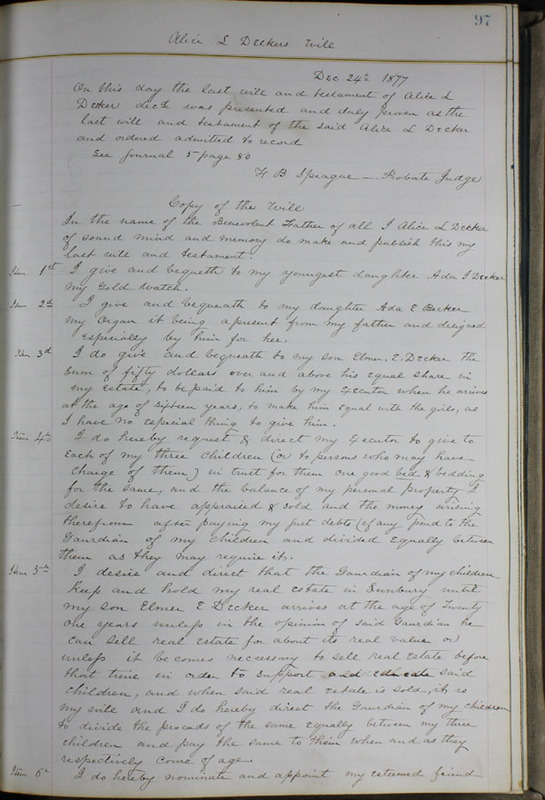 97
Alice L Deckers Will
Dec 24th 1877
On this day the last will and testament of Alice L
Decker decd was presented and duly proven as the
last will and testament of the said Alice L Decker
and ordered admitted to record
See Journal 5 page 80
F B Sprague — Probate Judge
Copy of the Will
In the name of the Benevolent Father of all I Alice L Decker
of sound mind and memory do make and publish this my
last will and testament.
Item 1st I give and bequeth to my youngest daughter Ada Decker
my Gold Watch.
Item 2d I give and bequeath to my daughter Ada E Decker
my Organ it being a present from my father and designed
especially by him for her.
Item 3d I do give and bequeath to my son Elmer. E. Decker the
sum of fifty dollars over and above his equal share in
my estate, to be paid to him by my Executor when he arives
at the age of sixteen years, to make him equal with the girls, as
I have no especial thing to give him.
Item 4th I do hereby request & direct my Executor to give to
each of my three children (or to persons who may have
charge of them) in trust for them one good bed & bedding
for the same, and the balance of my personal property I
desire to have appraised & sold and the money arising
therefrom after paying my just debts (if any paid to the
Gaurdian of my children and divided equally between
them as they may require it.
Item 5th I desire and direct that the Gaurdian of my children
Keep and hold my real estate in Sunbury until
my son Elmer E Decker arrives at the age of Twenty
one years unless in the opinion of said Guardian he
can sell real estate for about its real value or
unless it becomes necessary to sell real estate before
that time in order to support and educate said
children, and when said real estate is sold, it is
my will and I do hereby direct the Guardian of my children
to divide the proceeds of the same equally between my three
children and pay the same to them when and as they
respectively come of age.
Item 6th I do hereby nominate and appoint my esteemed friend